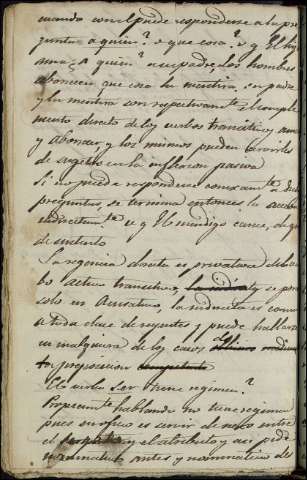 cuando con el puede responderse a la pre
gunta a quien? o que cosa? v g El hijo
ama a quien? a su padre, los hombres
aborrecen que cosa? la mentira, su padre
y la mentira son respectivam.te el comple
mento directo de los verbos transitivos amar
y aborrecer, y los mismos pueden servirles
de sugetos en la inflexion pasiva
Si no puede responderse a dichas
preguntas se termina entonces la accion
indirectam.te v g El mendigo carece, de que
de sustento
La regencia directa es privativa del ver
bo activo transitivo, y se pone
solo en Acusativo, la indirecta es comun
a toda clase de regentes y puede hallarse
en cualquiera de los casos
preposicion
El verbo Ser tiene regimen?
Propiam.te hablando no tiene regimen
pues su oficio es servir de nexo entre
el sugeto y el atributo y asi pide
nominativo antes y nominativo des